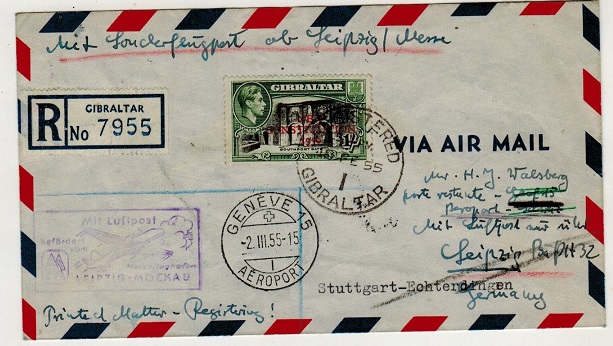 Mit Sonderflugpost ab Leipzig/Messe
R
GIBRALTAR
No 7955
GIBRALTAR
NEW
CONSTITUTION
1950
1/-
SOUTHPORT GATE
REGISTERED
FE 55
GIBRALTAR
VIA AIR MAIL
Mr. H. J. Walsberg
poste restante
Mit Luftpost nur über
Leipzig BPA 32
Mit Luftpost
befördert
vom
Messeflughafen
LEIPZIG-MOCKAU
GENÈVE 15
-2.III.55-15
AÉROPORT
Stuttgart-Echterdingen
Germany
Printed Matter - Registering!